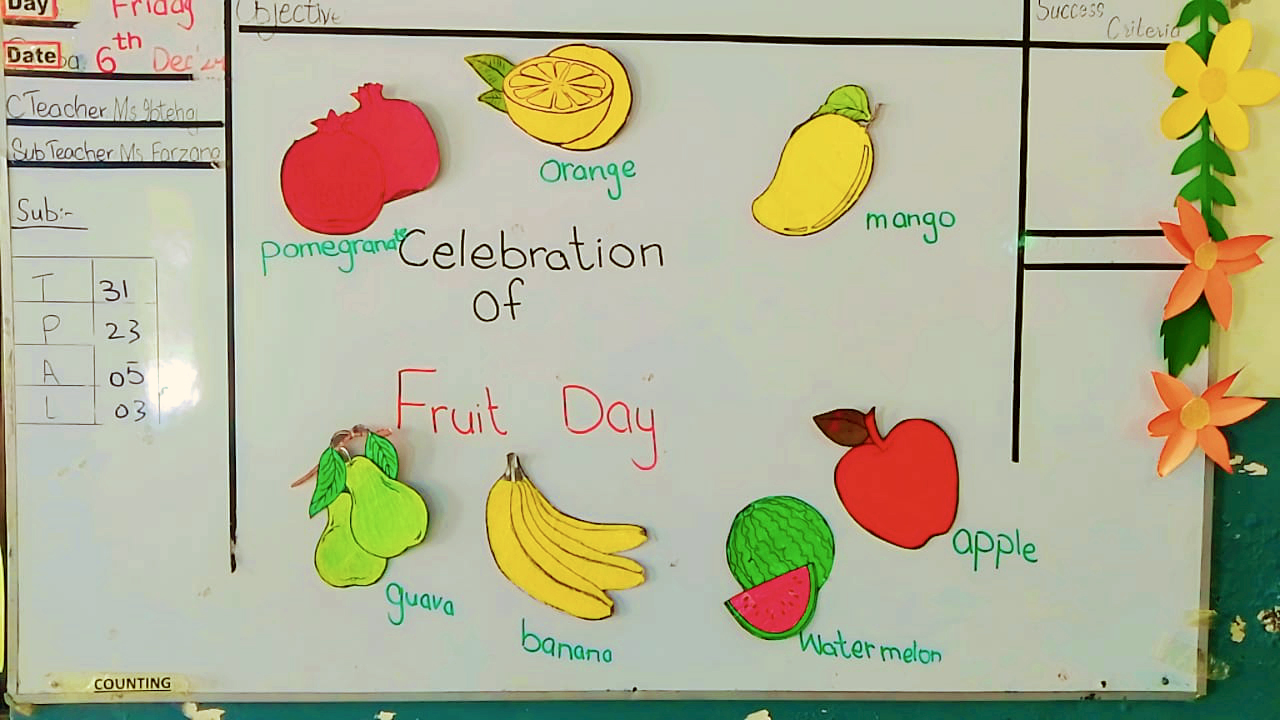 Day Friday
Date 6th Dec'24
C Teacher Ms
Sub Teacher Ms Farzana
Sub:-
T 31
P 23
A 05
L 03
COUNTING
Objective
Success
Criteria
Orange
mango
pomegranate
Celebration
Of
Fruit Day
guava
banana
apple
Watermelon